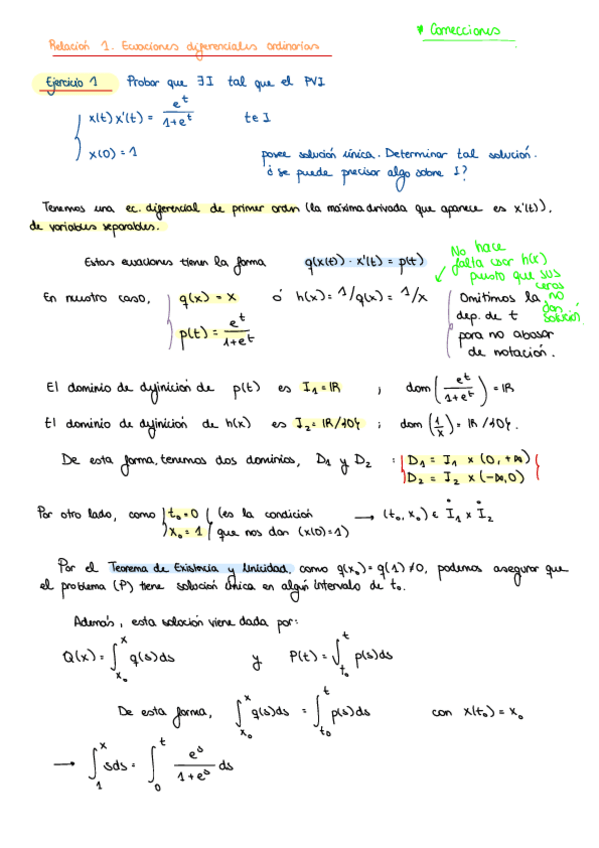 * Correcciones
Relación 1. Ecuaciones diferenciales ordinarias
Ejercicio 1 Probar que ∃ I tal que el PVI
x(t) x'(t) = e^t / (1+e^t) t ∈ I
x(0) = 1 posee solución única. Determinar tal solución.
¿ se puede precisar algo sobre I?
Tenemos una ec. diferencial de primer orden (la máxima derivada que aparece es x'(t)),
de variables separables.
Estas ecuaciones tienen la forma q(x(t)) · x'(t) = p(t)
No hace
falta usar h(x)
puesto que sus
ceros
no
dan
solución
En nuestro caso, q(x) = x ó h(x) = 1/q(x) = 1/x Omitimos la
p(t) = e^t / (1+e^t) dep. de t
para no abusar
de notación.
El dominio de definición de p(t) es I₁ = ℝ ; dom (e^t / (1+e^t)) = ℝ
El dominio de definición de h(x) es I₂ = ℝ/{0} ; dom (1/x) = ℝ/{0}.
De esta forma, tenemos dos dominios, D₁ y D₂ : D₁ = I₁ x (0, +∞)
D₂ = I₂ x (-∞, 0)
Por otro lado, como t₀ = 0 (es la condición → (t₀, x₀) ∈ I̊₁ x I̊₂
x₀ = 1 que nos dan (x(0) = 1)
Por el Teorema de Existencia y Unicidad, como q(x₀) = q(1) ≠ 0, podemos asegurar que
el problema (P) tiene solución única en algún intervalo de t₀.
Además, esta solución viene dada por:
Q(x) = ∫_{x₀}^{x} q(s)ds y P(t) = ∫_{t₀}^{t} p(s)ds
De esta forma, ∫_{x₀}^{x} q(s)ds = ∫_{t₀}^{t} p(s)ds con x(t₀) = x₀
→ ∫_{1}^{x} sds = ∫_{0}^{t} e^s / (1+e^s) ds